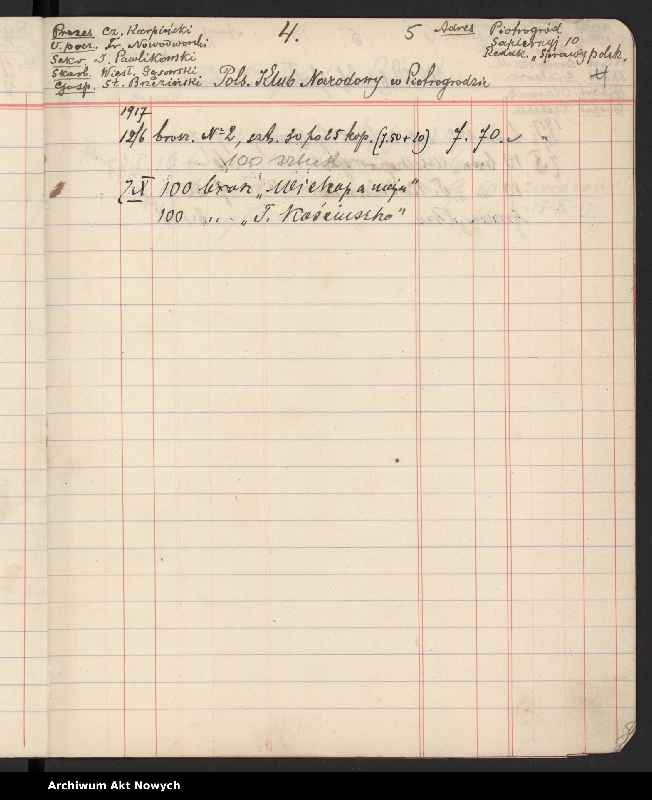 Prezes Cz. Karpiński
V. prez. Fr. Nowodworski
Sekr. J. Pawlikowski
Skarb. Wiesł. Gąsowski
Gosp. St. Brzeziński
4.
5
Adres Piotrogród
Sapiernyj 10
Redak. „Sprawy polsk.
Pols. Klub Narodowy w Piotrogrodzie
1917
12/6 brosz. № 2, szt. 30 po 25 kop. (7.50 + 20) 7. 70.
100 sztuk
7/X 100 brosz
100 „ . „T. Kościuszko"
Archiwum Akt Nowych